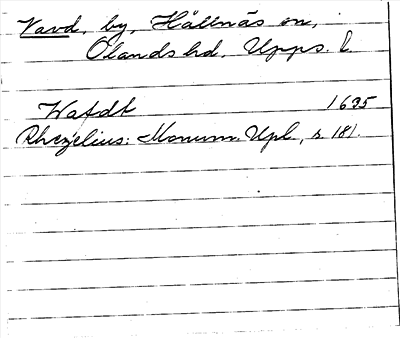 Vavd, by, Hållnäs sn,
Olands hd, Upps. l.
Watdt 1695
Rhezelius: Monum. Upl., s. 181.